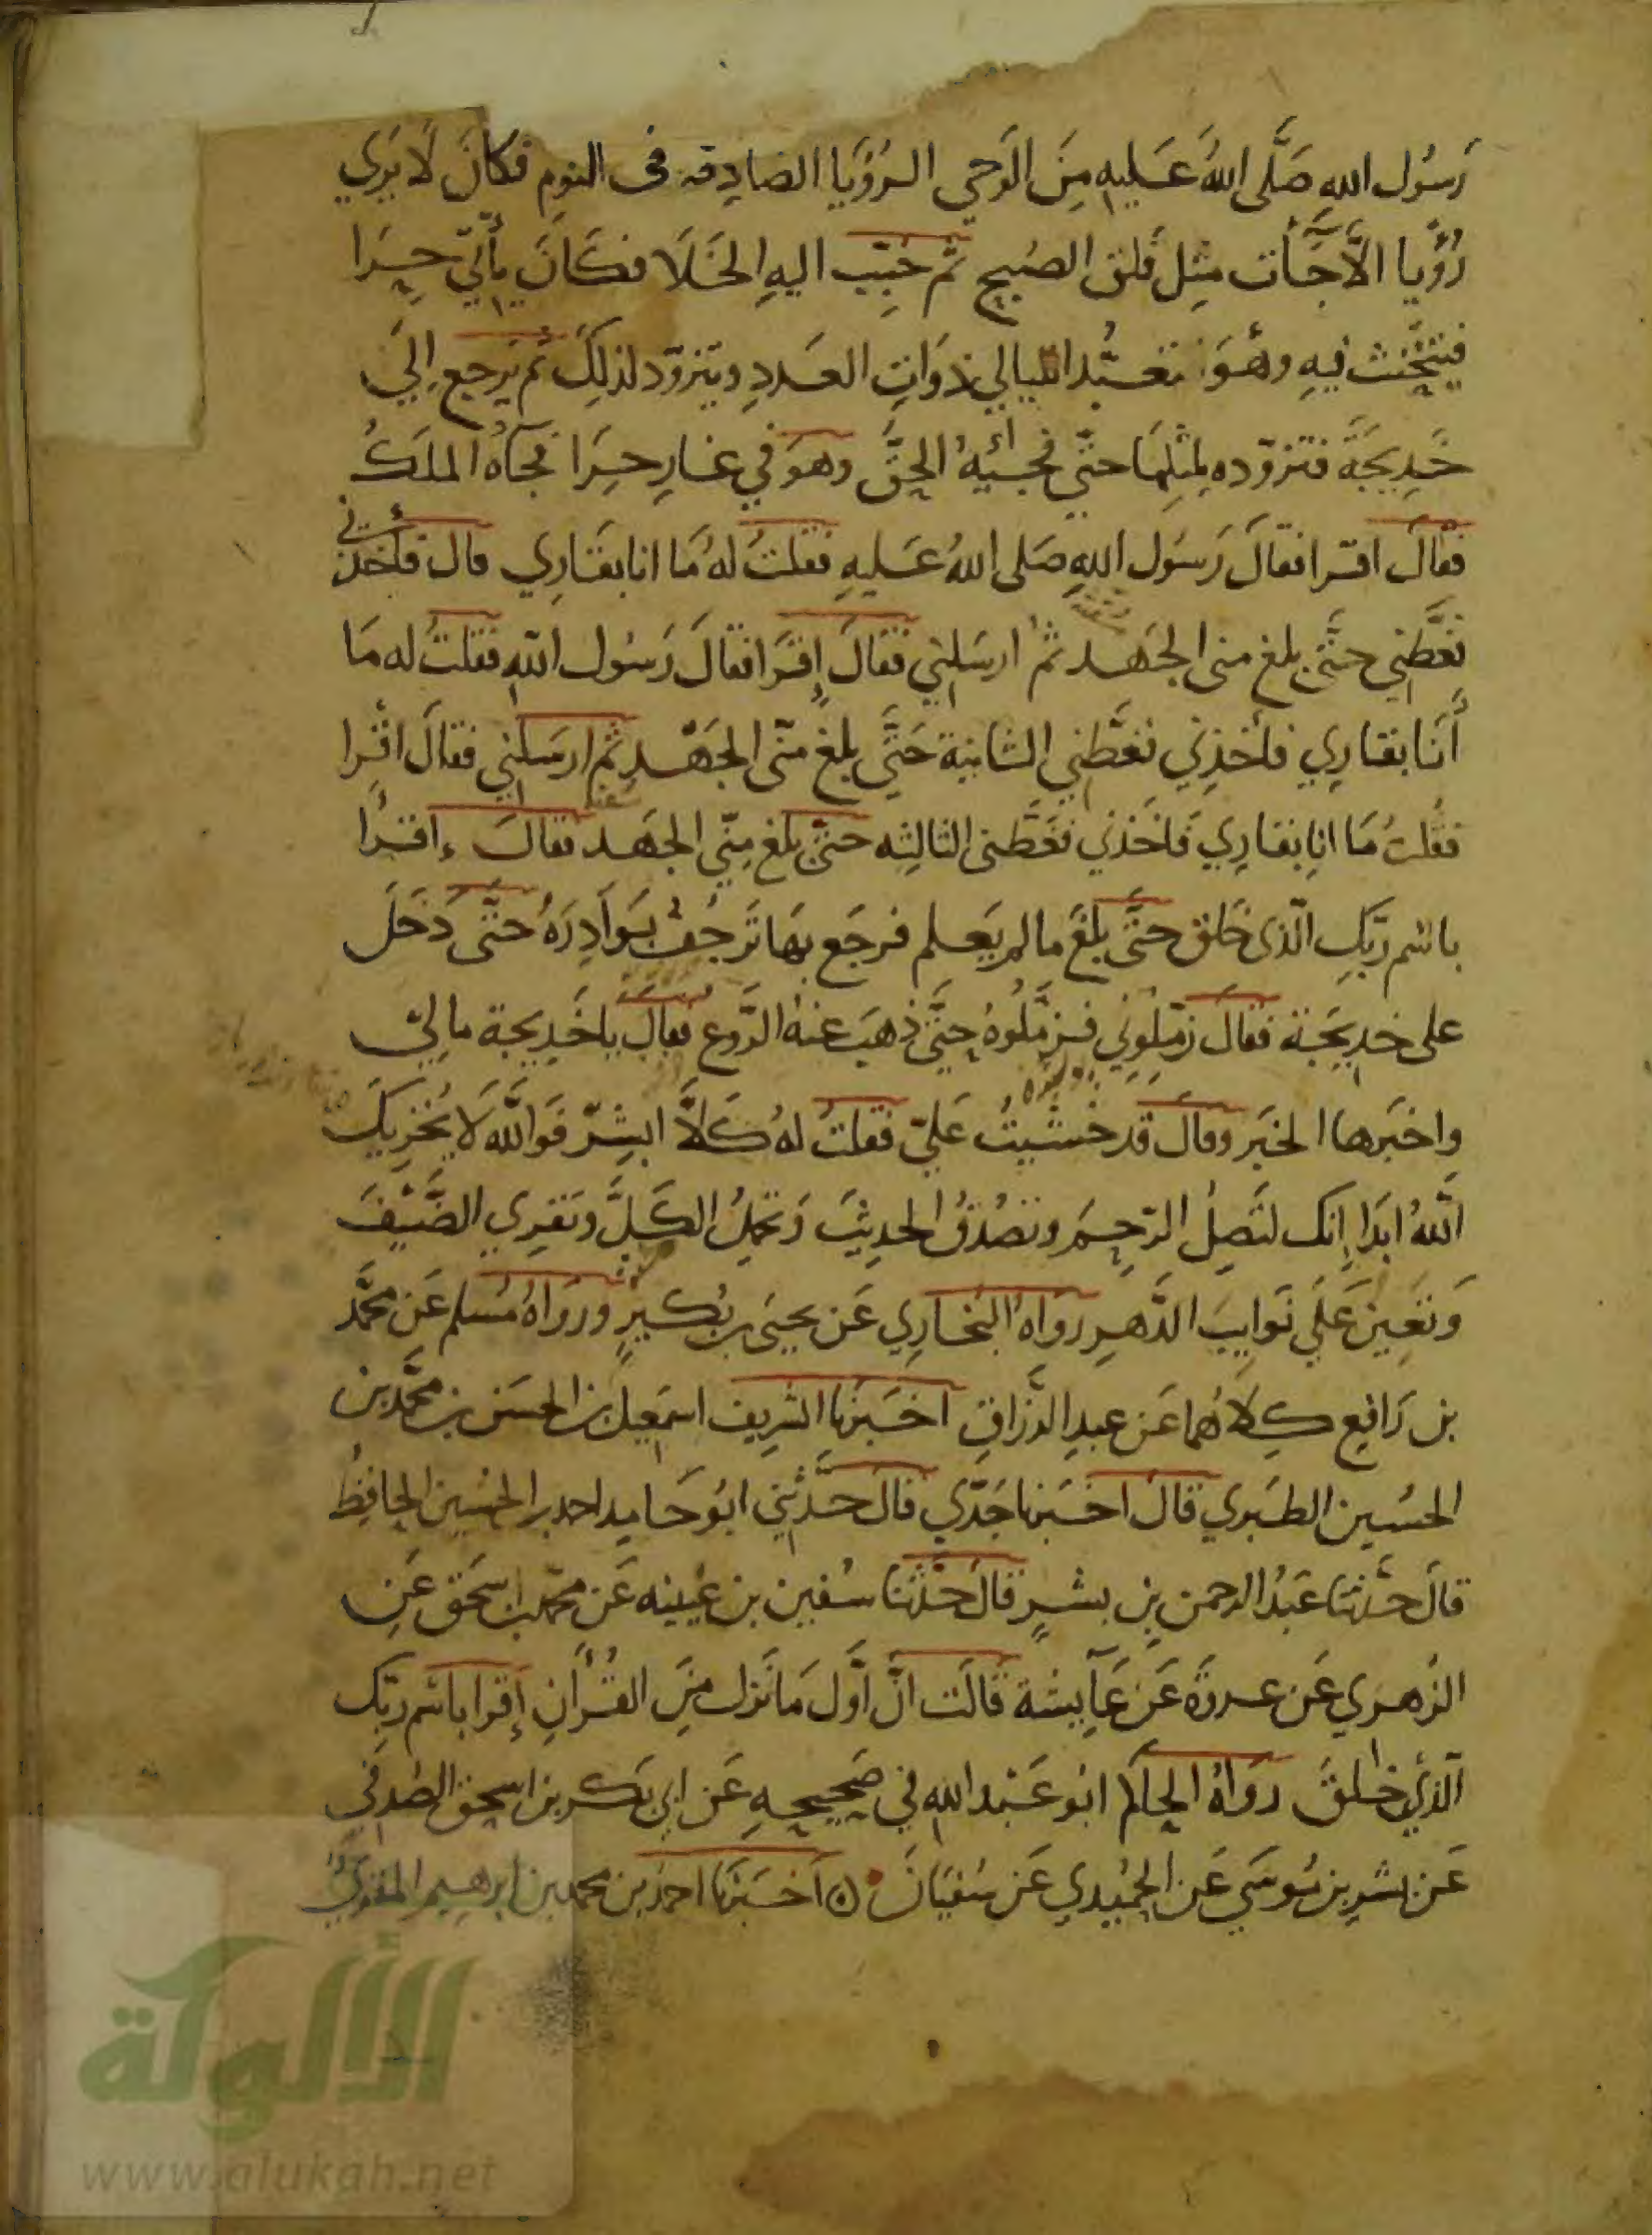 رَسُول اللهِ صَلَّى اللهُ عَليهِ مِنَ الوَحي الرُؤيَا الصَادِقه فى النومِ فكانَ لَا يَرَي
رُؤيا الّا جَآت مِثل فَلق الصُبح ثم حُبِّب اليهِ الخَلَا فكَانَ يأتي حِرَا
فيتحَنث فيهِ وهُوَ تعَبُّد الليالي ذوَاتِ العَددِ ويتزوّد لذلِكَ ثم يَرجع إلَي
خَدِيجَةَ فتزوّده لمِثلِهَا حتّي فجئَهُ الحقّ وهوَ في غارِ حِرَا فجآهُ الملَكُ
فقالَ اقرا فقالَ رَسُول اللهِ صَلى اللهُ عَليهِ فقلتُ لهُ مَا انا بقَارِي قال فأخذني
فغَطَّني حتَّى بلغ منى الجَهد ثمُ ارسَلني فقالَ إقرَا فقالَ رَسُول اللهِ فقلتُ له مَا
أَنَا بقارِي فأخَذني فغَطَّني الثانية حَتَّي بلغ منّى الجَهْد ثم ارسَلني فقالَ اقْرا
فقُلتُ مَا انا بقارِي فَاخَذني فغَطَّنى الثالِثه حتّى بلغ مِنّي الجَهد فقالَ اقرأ
باسْم ربّكِ الّذى خَلق حتَّى بلَغَ مالم يَعلم فرجَع بهَا تَرجُفُ بَوَادِرَهُ حتَّى دَخَلَ
على خديجَة فقالَ زمّلِوني فزمَّلُوهُ حتَّى ذهَبَ عنهُ الرَّوع فقالَ ياخَدِيجة مالي
واخبَرها الخبَر وقالَ قد خشيتُ عَليّ فقلتُ لهُ كَلَّا ابشِرْ فَوَاللّه لَا يُخْزيكَ
اللّهُ ابدَا إنك لتَصِلُ الرّحِمَ وتصْدُقُ الحدِيثَ وَتحمِلُ الكَلَّ وتَقرِي الضَّيْفَ
وَتعِينُ عَلَي نَوايبَ الدَّهرِ رواهُ البخارِي عَن يحيَى بن بُكَيرٍ ورَوَاهُ مُسلم عَن محمَّد
بن رَافِع كِلاهُما عَن عبدِ الرزاقِ اخبَرنا الشريف اسمعيل بن الحسَن بن محمَّد بن
الحسُين الطبَري قالَ اخبَرنا جَدّي قالَ حدَّثني ابُو حَامِد احمد بن الحسُين الحافِظُ
قالَ حدّثنا عَبْدُ الرحمن بن بشرٍ قالَ حَدّثنا سُفين بن عُيينه عَن محمد بن اسحَق عَنِ
الزهري عَن عروَة عَن عَآيشة قَالَت انّ أَوَّل مَا نَزل مِنَ القُرآنِ إقرا باسْم ربّك
الّذي خلَقَ رواهُ الحاكم ابُو عَبْد اللهِ في صَحيحِهِ عَن ابي بَكر بن اسحق الصدفي
عَن بشر بن مُوسَي عَن الحمُيدي عَن سُفيَانَ ه اخبَرنا احمد بن محمد بن ابرهيم المقرئ
الألوكة
www.alukah.net